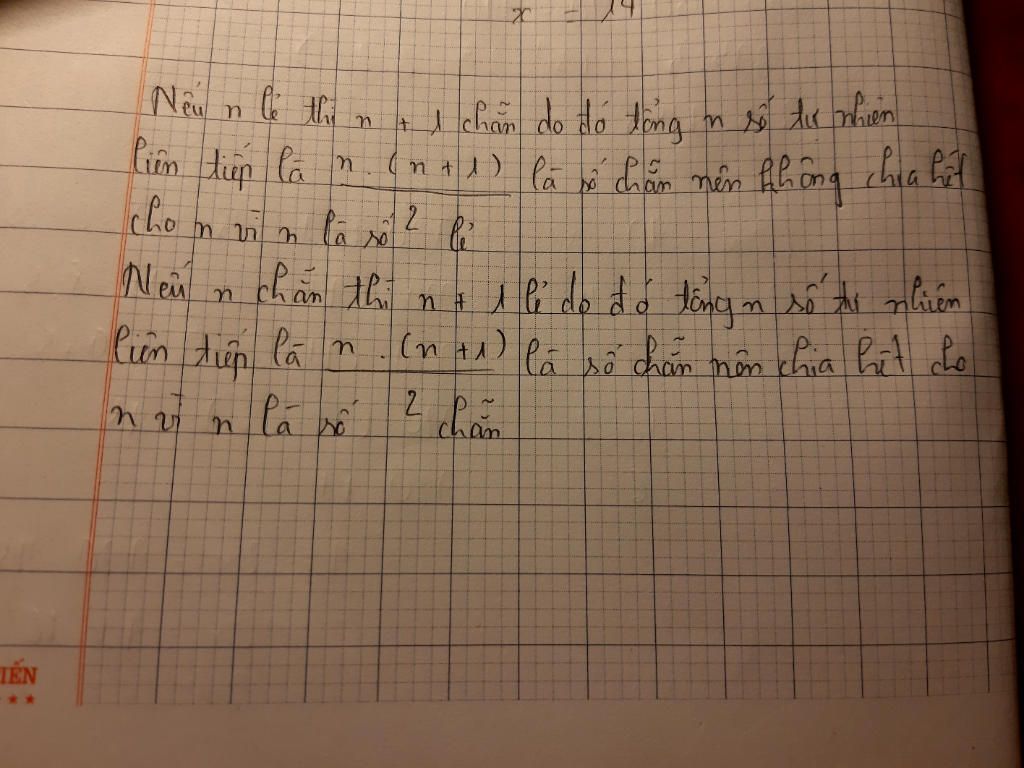 x = 14
Nếu n lẻ thì n + 1 chẵn do đó tổng n số tự nhiên
liên tiếp là n . (n + 1) là số chẵn nên không chia hết
cho n vì n là số 2 lẻ
Nếu n chẵn thì n + 1 lẻ do đó tổng n số tự nhiên
liên tiếp là n . (n + 1) là số chẵn nên chia hết cho
n vì n là số 2 chẵn
IẾN
★ ★